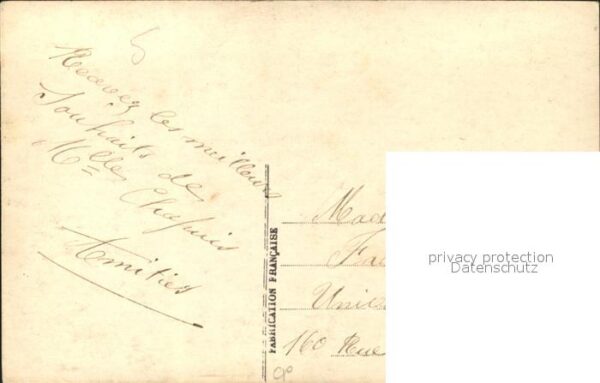 Recevez les meilleurs
Souhaits de
Mlles Chapuis
Amitiés
FABRICATION FRANÇAISE
Mad
Fa
Unis
160 Rue
privacy protection
Datenschutz